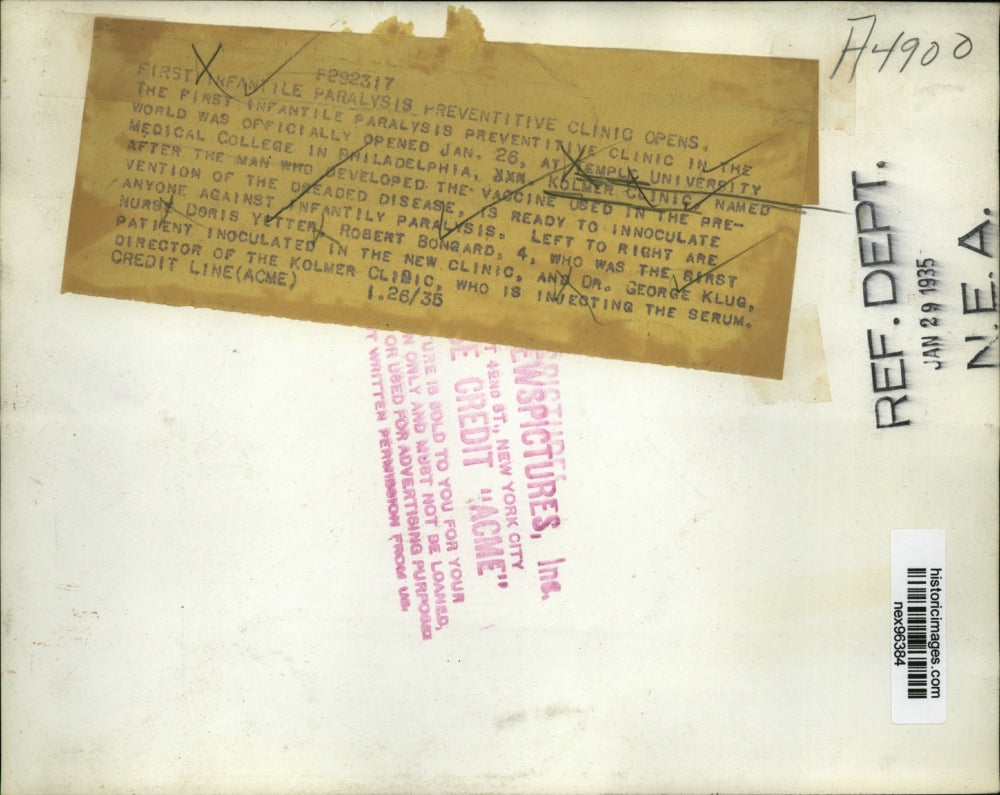 A4900
F292317
FIRST INFANTILE PARALYSIS PREVENTITIVE CLINIC OPENS.
THE FIRST INFANTILE PARALYSIS PREVENTITIVE CLINIC IN THE
WORLD WAS OFFICIALLY OPENED JAN. 26, AT TEMPLE UNIVERSITY
MEDICAL COLLEGE IN PHILADELPHIA, XXX. KOLMER CLINIC, NAMED
AFTER THE MAN WHO DEVELOPED THE VACCINE USED IN THE PRE-
VENTION OF THE DREADED DISEASE, IS READY TO INNOCULATE
ANYONE AGAINST INFANTILY PARALYSIS. LEFT TO RIGHT ARE
NURSE DORIS YETTER, ROBERT BONGARD, 4, WHO WAS THE FIRST
PATIENT INOCULATED IN THE NEW CLINIC, AND DR. GEORGE KLUG,
DIRECTOR OF THE KOLMER CLINIC, WHO IS INJECTING THE SERUM.
CREDIT LINE(ACME) 1.26/35
REF. DEPT.
JAN 29 1935
N.E.A.
EWSPICTURES, Inc.
T 42ND ST., NEW YORK CITY
SE CREDIT "ACME"
URE IS SOLD TO YOU FOR YOUR
N ONLY AND MUST NOT BE LOANED,
OR USED FOR ADVERTISING PURPOSES
T WRITTEN PERMISSION FROM US.
historicimages.com
nex96384